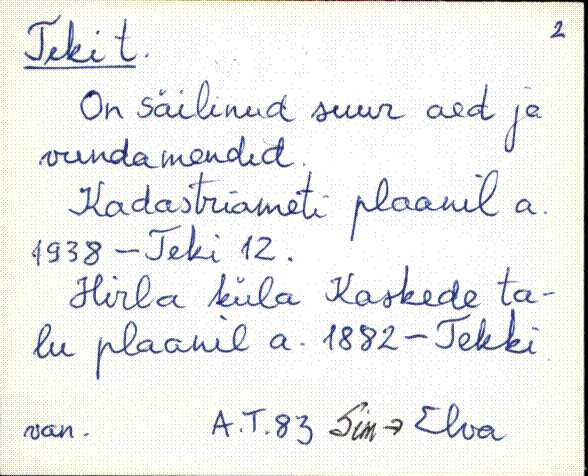 2
Teki t.
On säilinud suur aed ja
vundamendid.
Kadastriameti plaanil a.
1938 – Teki 12.
Hirla küla Kaskede ta-
lu plaanil a. 1882 – Tekki
van. A.T.83 Sim → Elva